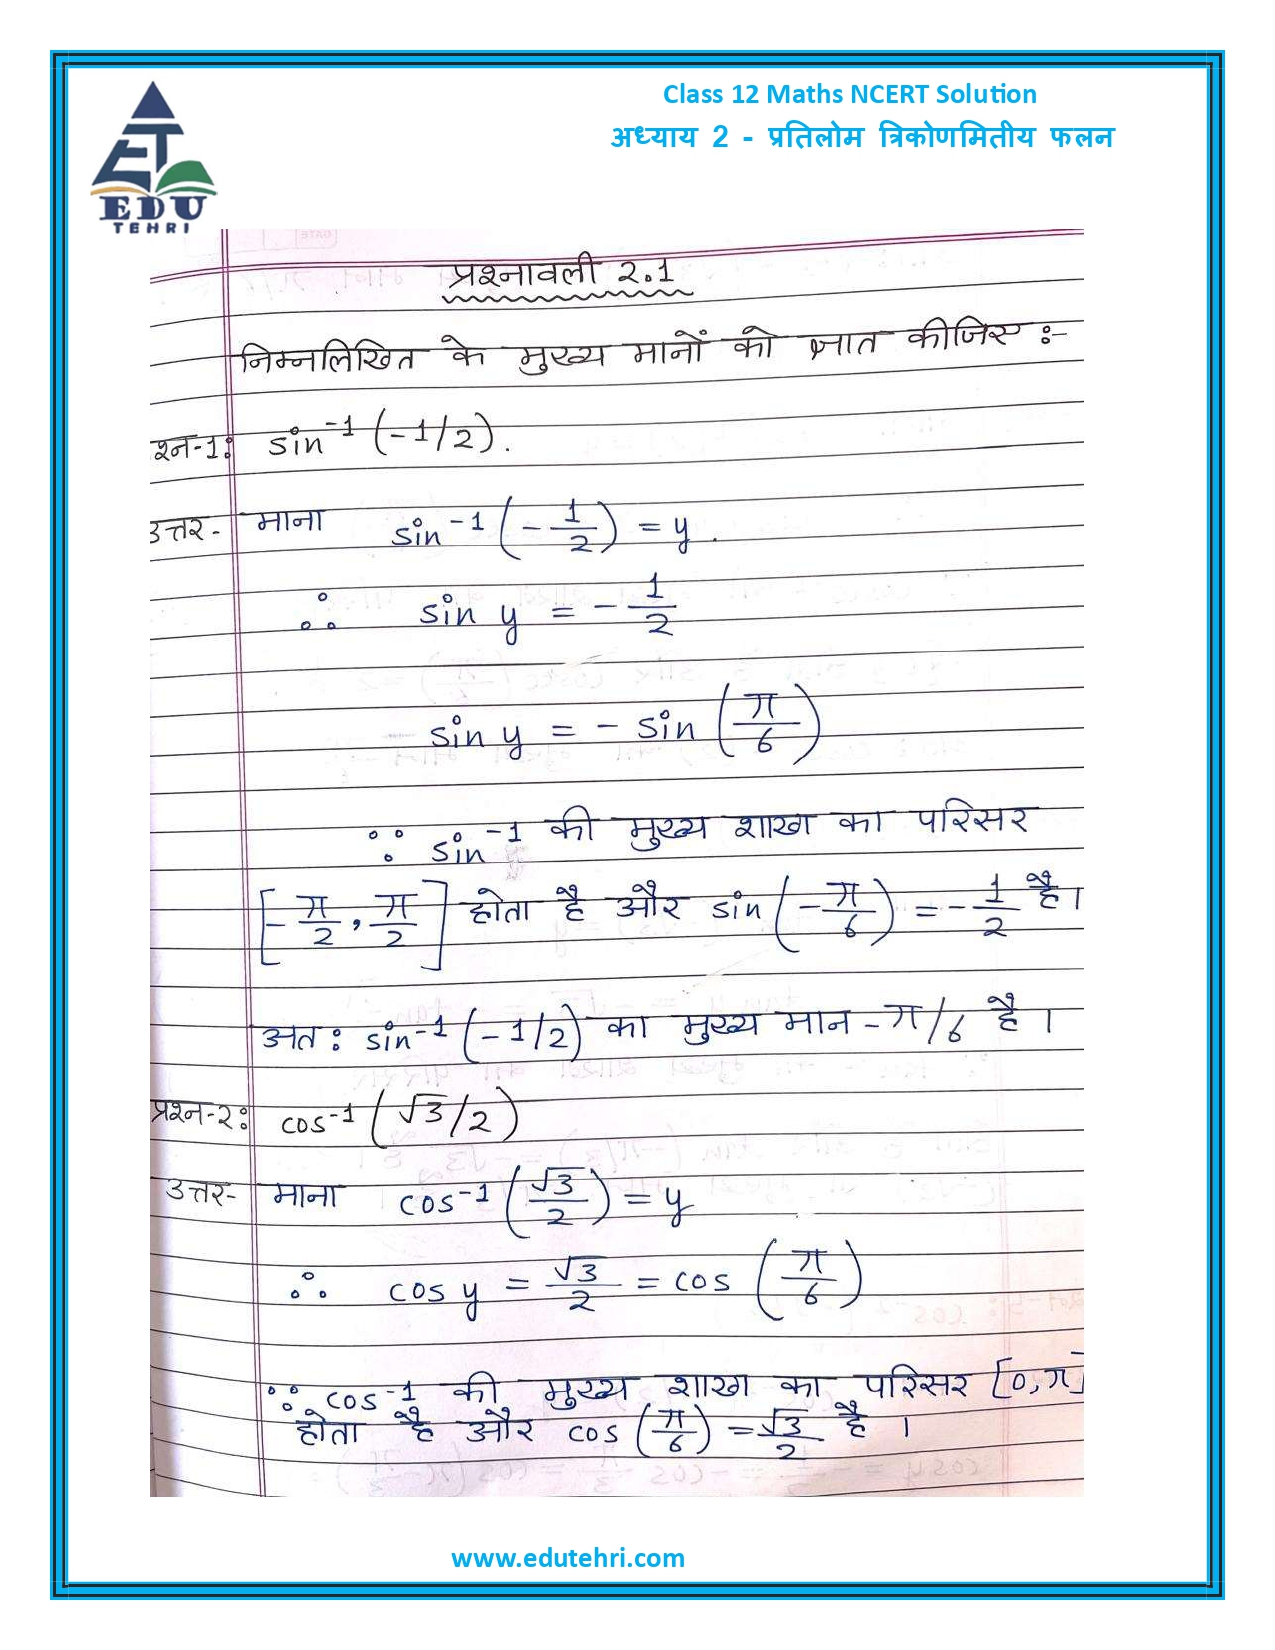 Class 12 Maths NCERT Solution
अध्याय 2 - प्रतिलोम त्रिकोणमितीय फलन
EDU
TEHRI
प्रश्नावली २.1
निम्नलिखित के मुख्य मानों को ज्ञात कीजिए :-
श्न-1: sin⁻¹ (-1/2).
उत्तर- माना sin⁻¹ (-1/2) = y.
∴ sin y = -1/2
sin y = - sin (π/6)
∵ sin⁻¹ की मुख्य शाख का परिसर
[-π/2, π/2] होता है और sin (-π/6) = -1/2 है।
अत: sin⁻¹ (-1/2) का मुख्य मान -π/6 है।
प्रश्न-२: cos⁻¹ (√3/2)
उत्तर- माना cos⁻¹ (√3/2) = y
∴ cos y = √3/2 = cos (π/6)
∵ cos⁻¹ की मुख्य शाख का परिसर [0, π]
होता है और cos (π/6) = √3/2 है।
www.edutehri.com